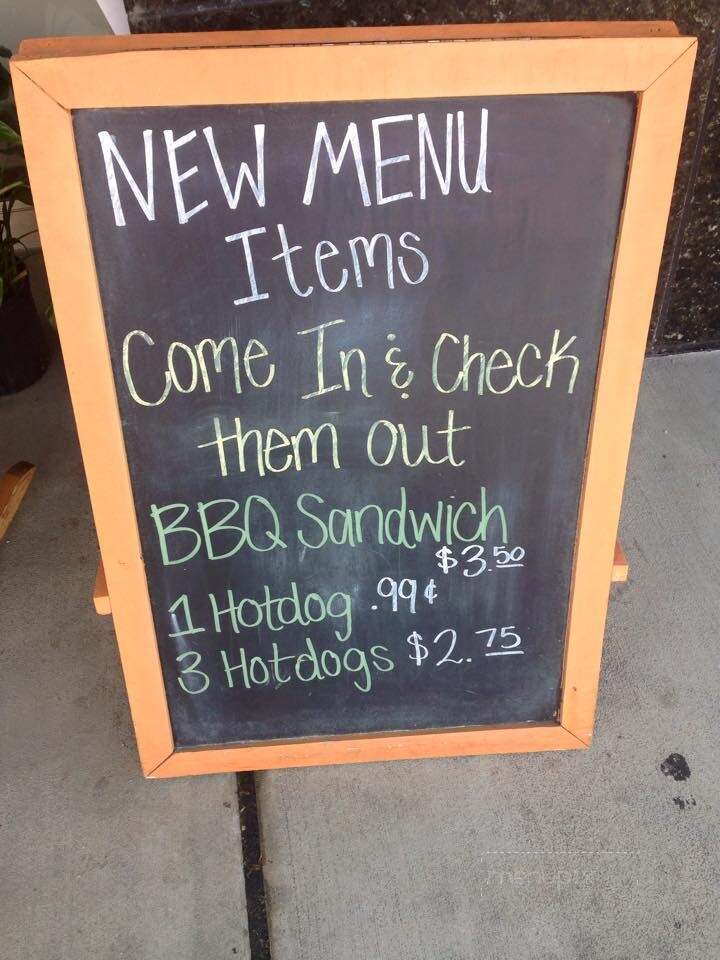 NEW MENU
Items
Come In & Check
them out
BBQ Sandwich
$3.50
1 Hotdog .99¢
3 Hotdogs $2.75
menupix